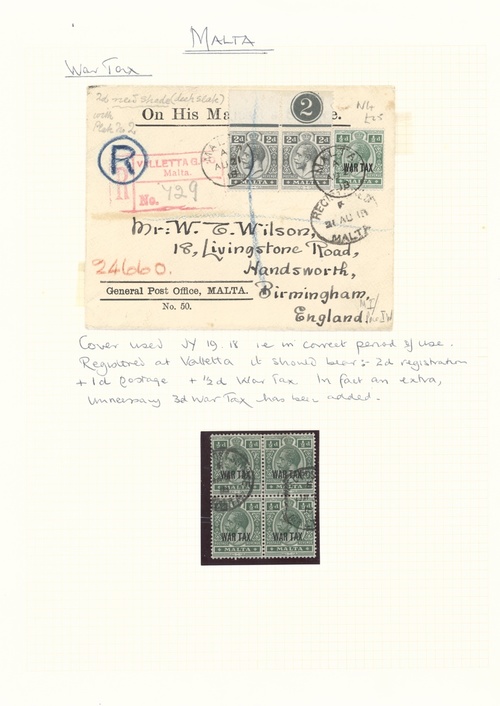 MALTA
War Tax
2d new shade (dark slate)
with
Plate No 2
On His Ma e.
2
2d 2d ½d
WAR TAX
MALTA MALTA MALTA
R
VALLETTA G.
Malta.
R
No. 429
MALTA
AU 21
18
REGISTERED
21 AU 18
MALTA
Mr. W. T. Wilson,
18, Livingstone Road,
Handsworth,
Birmingham,
England
24660.
General Post Office, MALTA.
No. 50.
Cover used JY 19. 18 i.e in correct period of use.
Registered at Valletta it should bear :- 2d registration
+ 1d postage + ½d War Tax In fact an extra,
unnecessary 3d War Tax has been added.
½d ½d ½d ½d
WAR TAX WAR TAX
½d ½d ½d ½d
WAR TAX WAR TAX
MALTA MALTA